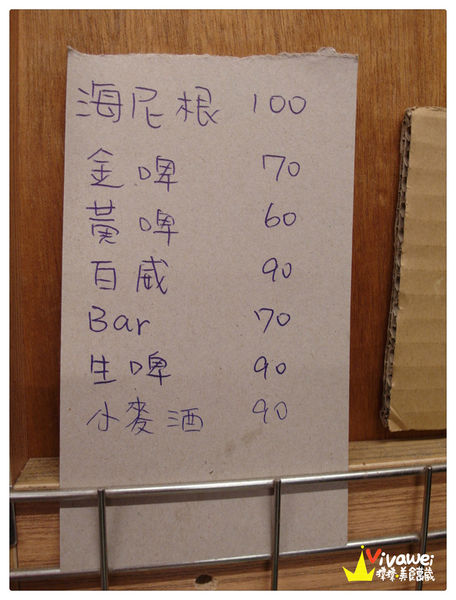 海尼根 100
金啤 70
黃啤 60
百威 90
Bar 70
生啤 90
小麥酒 90
Vivawei